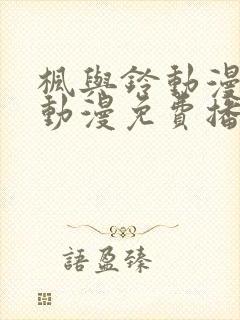 楓與鈴動漫
動漫免費播
語盈臻